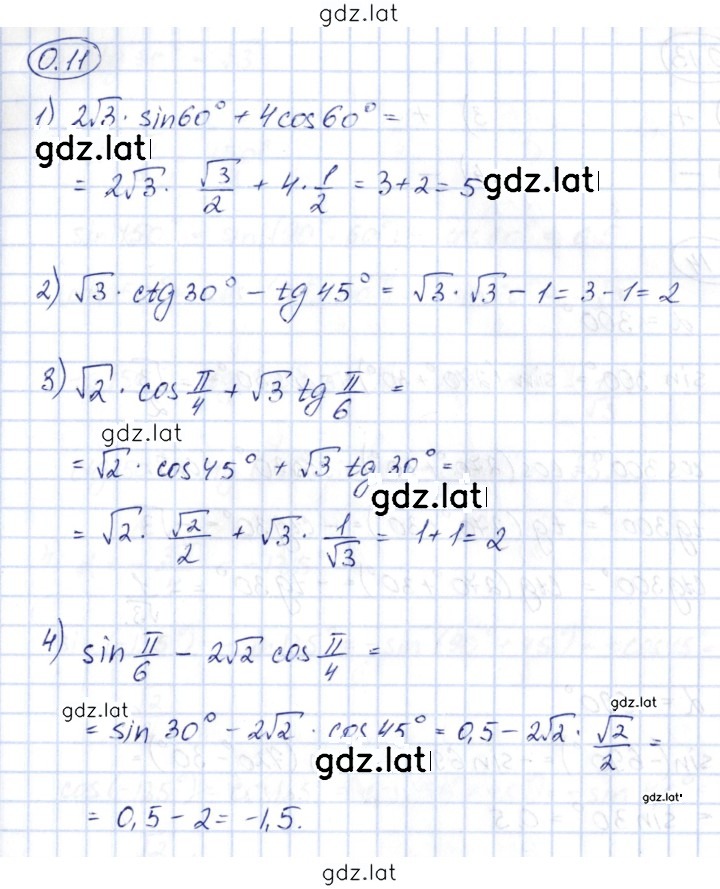 gdz.lat
0.11
1) 2√3 · sin60° + 4cos60° =
gdz.lat
= 2√3 · √3/2 + 4 · 1/2 = 3+2 = 5 gdz.lat
2) √3 · ctg 30° − tg 45° = √3 · √3 − 1 = 3 − 1 = 2
3) √2 · cos π/4 + √3 tg π/6 =
gdz.lat
= √2 · cos 45° + √3 tg 30° =
gdz.lat
= √2 · √2/2 + √3 · 1/√3 = 1+1 = 2
4) sin π/6 − 2√2 cos π/4 =
gdz.lat
gdz.lat
= sin 30° − 2√2 · cos 45° = 0,5 − 2√2 · √2/2 =
gdz.lat
gdz.lat
= 0,5 − 2 = −1,5.
gdz.lat